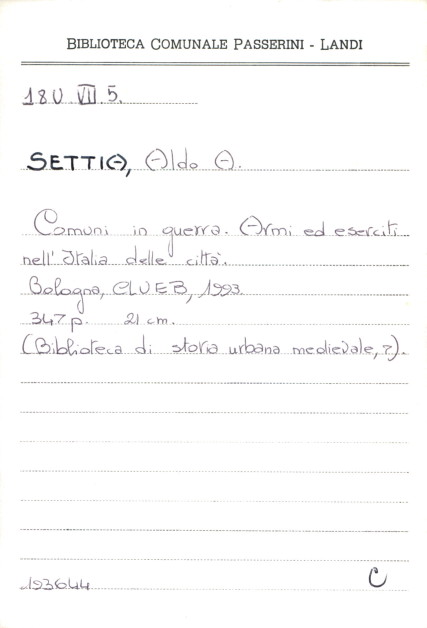 BIBLIOTECA COMUNALE PASSERINI - LANDI
18U VII 5.
SETTIA, Aldo A.
Comuni in guerra. Armi ed eserciti
nell'Italia delle città.
Bologna, CLUEB, 1993.
347 p. 21 cm.
(Biblioteca di storia urbana medievale, 7).
193644
C